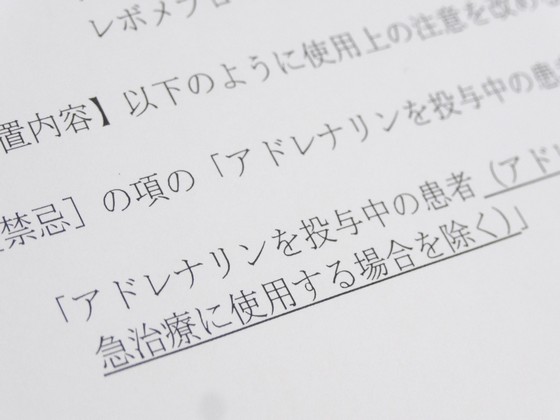 レボメプロ
置内容】以下のように使用上の注意を改め
禁忌］の項の「アドレナリンを投与中の患
「アドレナリンを投与中の患者（アド
急治療に使用する場合を除く）」